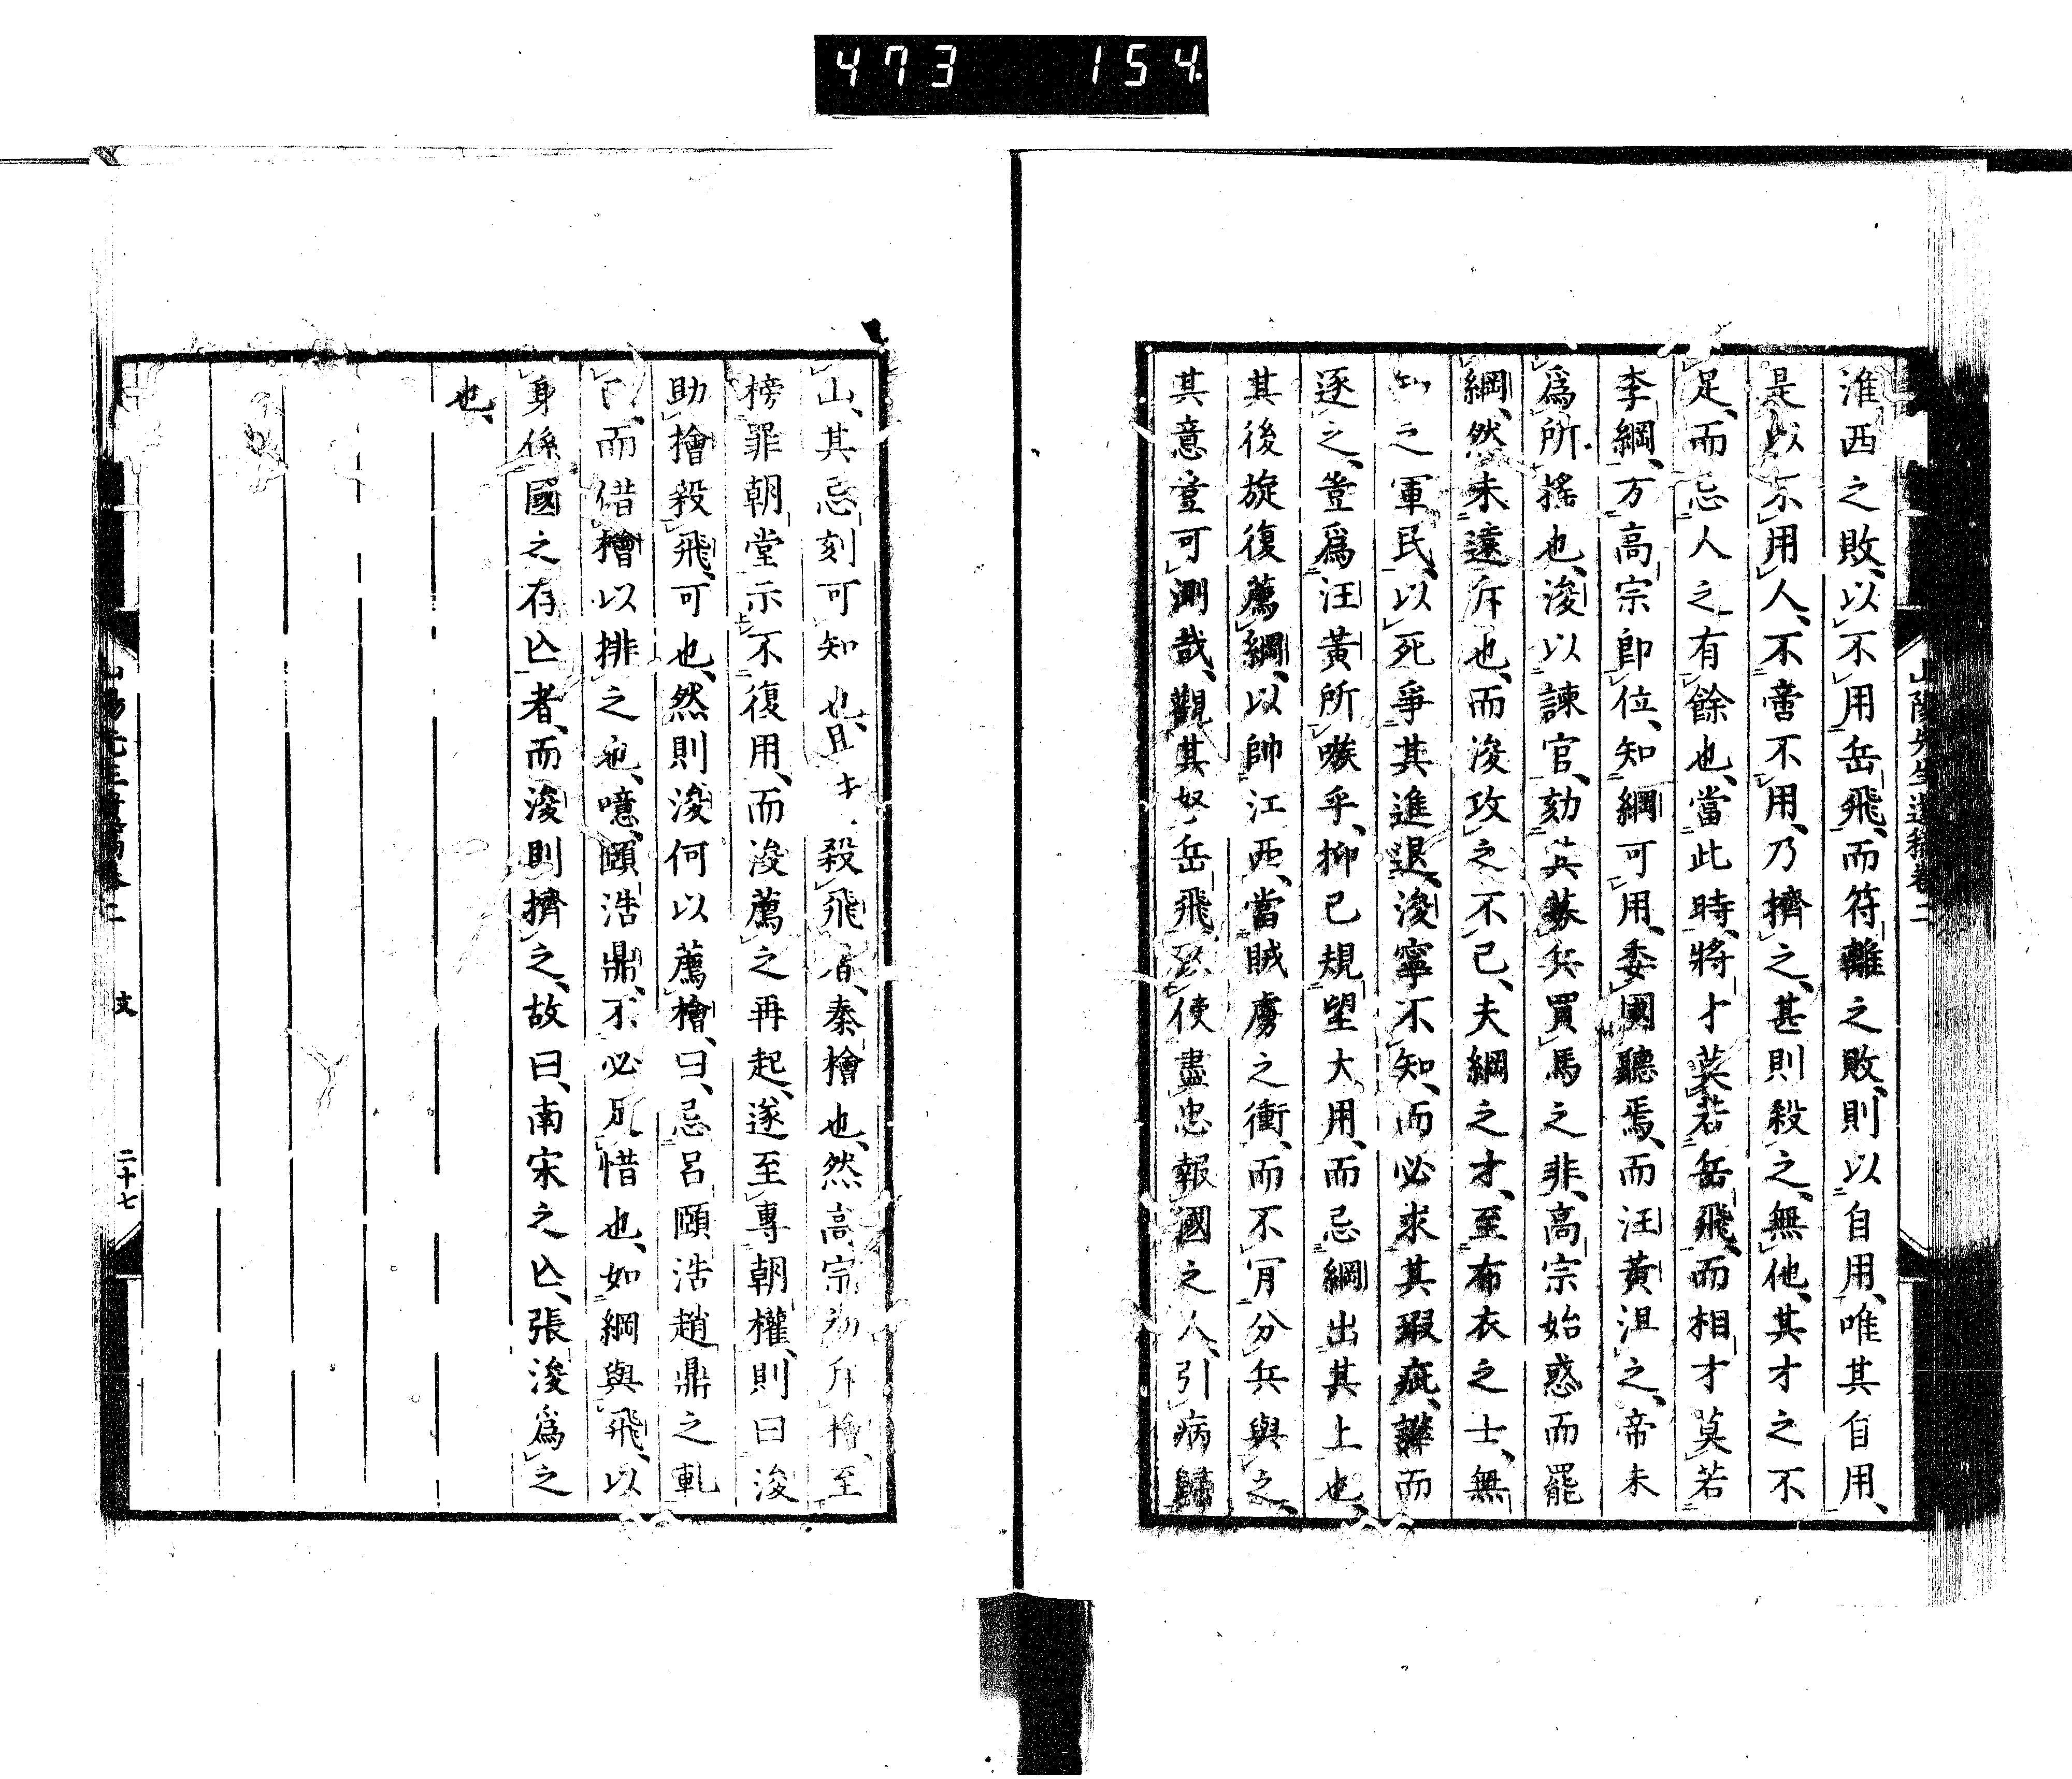 473 154
山陽先生遺稿卷二
淮西之敗、以不用岳飛、而符離之敗、則以自用、唯其自用、
是以不用人、不啻不用、乃擠之、甚則殺之、無他、其才之不
足、而忘人之有餘也、當此時、將才莫若岳飛、而相才莫若
李綱、方高宗即位、知綱可用、委國聽焉、而汪黃沮之、帝未
爲所搖也、浚以諫官、劾其募兵買馬之非、高宗始惑而罷
綱、然未遠斥也、而浚攻之不已、夫綱之才、至布衣之士、無
知之軍民、以死爭其進退、浚寧不知、而必求其瑕疵、譁而
逐之、豈爲汪黃所嗾乎、抑已規望大用、而忌綱出其上也、
其後旋復薦綱、以帥江西、當賊虜之衝、而不肎分兵與之、
其意豈可測哉、觀其怒岳飛、以使盡忠報國之人、引病歸
山、其忌刻可知也、且 殺飛者、秦檜也、然高宗初斥檜、至
榜罪朝堂示不復用、而浚薦之再起、遂至專朝權、則曰浚
助檜殺飛、可也、然則浚何以薦檜、曰、忌呂頤浩趙鼎之軋
而借檜以排之也、噫、頤浩鼎、不必 惜也、如綱與飛、以
身係國之存亾者、而浚則擠之、故曰、南宋之亾、張浚爲之
也、
山陽先生遺稿卷二 文 二十七